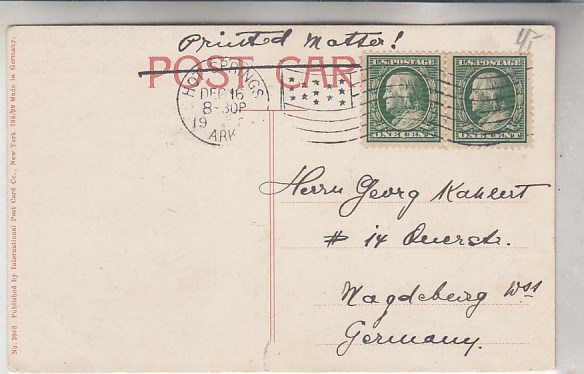 4/-
Printed Matter!
POST CARD
HOT SPRINGS
DEC 16
8-30P
19
ARK.
U.S.POSTAGE
ONE CENT
U.S.POSTAGE
ONE CENT
Herrn Georg Kahlert
# 14 Querstr.
Magdeburg Wss
Germany.
No. 2848. Published by International Post Card Co., New York. 198/99 Made in Germany.